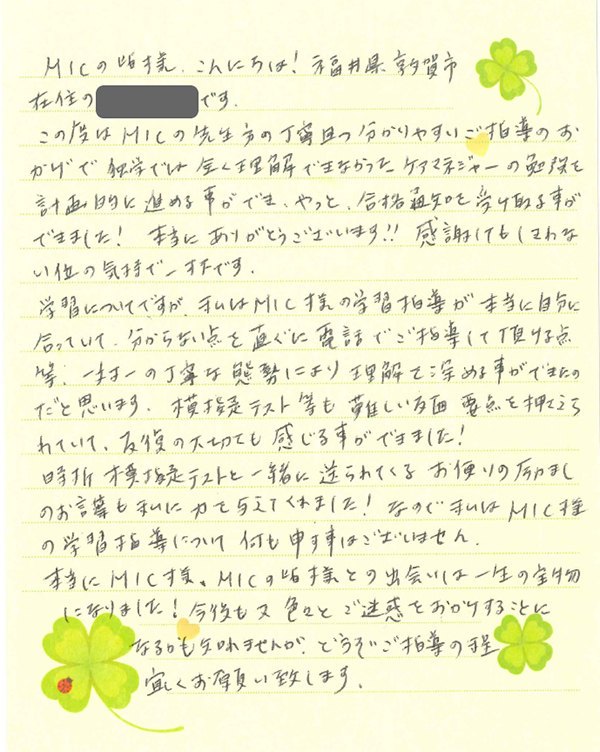 MICの皆様、こんにちは! 福井県敦賀市
在住の です。
この度はMICの先生方の丁寧且つ分かりやすいご指導のお
かげで独学では全く理解できなかったケアマネジャーの勉強を
計画的に進める事ができ、やっと、合格通知を受け取る事が
できました! 本当にありがとうございます!! 感謝してもしきれな
い位の気持で一杯です。
学習についてですが、私はMIC様の学習指導が本当に自分に
合っていて、分からない点を直ぐに電話でご指導して頂ける点
等、一対一の丁寧な態勢により理解を深める事ができたの
だと思います。模擬テスト等も難しい反面 要点を押えら
れていて、反復の大切さも感じる事ができました!
時折 模擬テストと一緒に送られてくる お便りの励まし
のお言葉も私に力を与えてくれました! なので私はMIC様
の学習指導について何も申す事はございません。
本当にMIC様、MICの皆様との出会いは一生の宝物
になりました! 今後も又色々とご迷惑をおかけすることに
なるかも知れませんが、どうぞご指導の程
宜しくお願い致します。